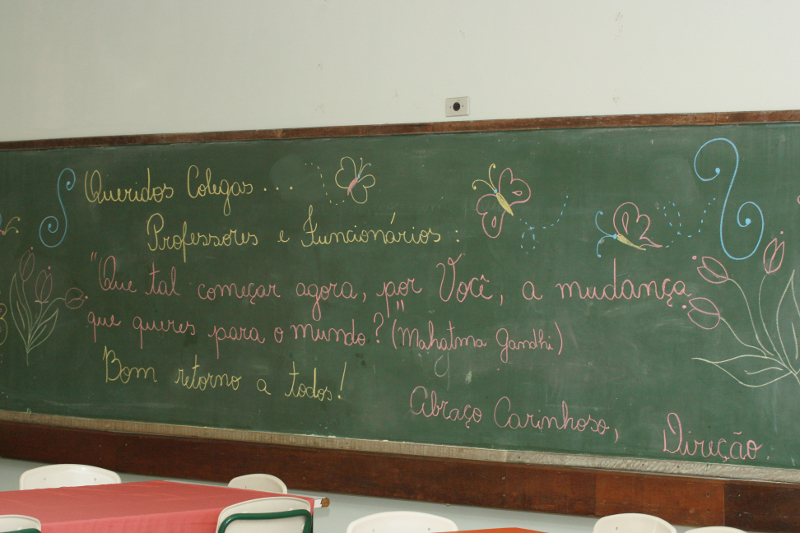 Queridos Colegas...
Professores e Funcionários:
"Que tal começar agora, por Você, a mudança
que queres para o mundo?" (Mahatma Gandhi)
Bom retorno a todos!
Abraço Carinhoso,
Direção.